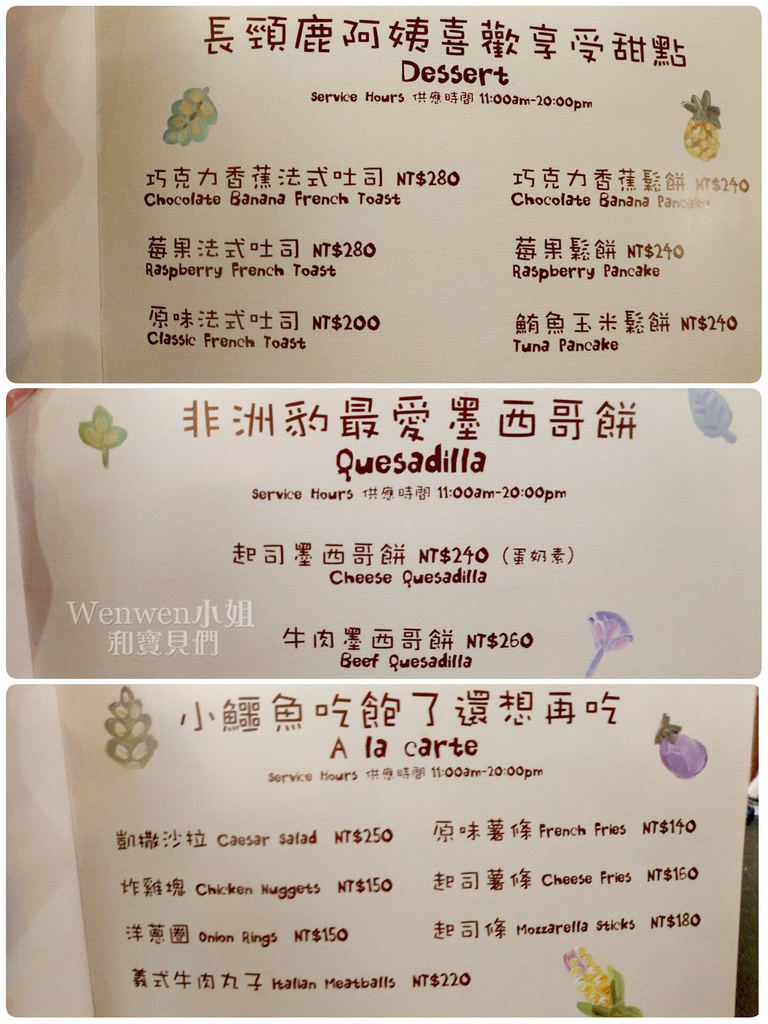 長頸鹿阿姨喜歡享受甜點
Dessert
Service Hours 供應時間 11:00am-20:00pm
巧克力香蕉法式吐司 NT$280
Chocolate Banana French Toast
莓果法式吐司 NT$280
Raspberry French Toast
原味法式吐司 NT$200
Classic French Toast
巧克力香蕉鬆餅 NT$240
Chocolate Banana Pancake
莓果鬆餅 NT$240
Raspberry Pancake
鮪魚玉米鬆餅 NT$240
Tuna Pancake
非洲豹最愛墨西哥餅
Quesadilla
Service Hours 供應時間 11:00am-20:00pm
起司墨西哥餅 NT$240 (蛋奶素)
Cheese Quesadilla
牛肉墨西哥餅 NT$260
Beef Quesadilla
Wenwen小姐
和寶貝們
小鱷魚吃飽了還想再吃
A la carte
Service Hours 供應時間 11:00am-20:00pm
凱撒沙拉 Caesar Salad NT$250
炸雞塊 Chicken Nuggets NT$150
洋蔥圈 Onion Rings NT$150
義式牛肉丸子 Italian Meatballs NT$220
原味薯條 French Fries NT$140
起司薯條 Cheese Fries NT$160
起司條 Mozzarella Sticks NT$180